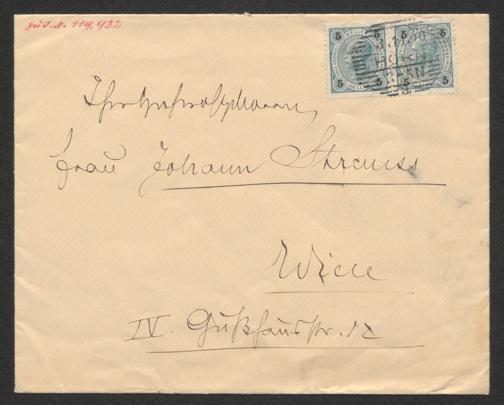 119.932
5 5 5 5
5 5 5 5
Ihrer Hochwohlgeboren
Frau Johann Strauss
Wien
IV. Gußhausstr. 12